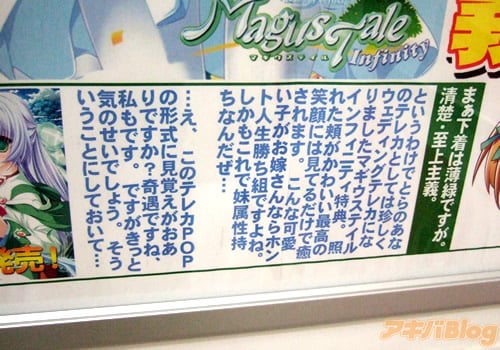 Magus Tale
Infinity
マギウステイル
まあ下着は薄緑ですが。
清楚・至上主義。
というわけでとらのあな
のテレカとしては珍しく
ウェディングテレカにな
りましたマギウステイル
インフィニティ特典。照
れた頬がかわいい最高の
笑顔には見てるだけで癒
されます。こんな可愛
い子がお嫁さんならホン
ト人生勝ち組ですよね。
しかもこれで妹属性持
ちなんだぜ…
…え、このテレカPOP
の形式に見覚えがおあ
りですか？奇遇ですね、
私もです。ですがきっと
気のせいでしょう。そう
いうことにしておいて…
発売！
アキバBlog